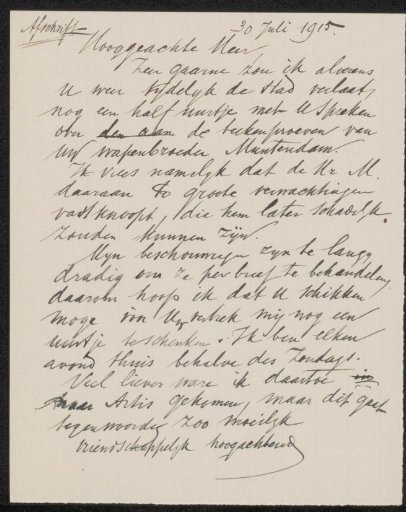 Afschrift
30 Juli 1915.
Hooggeachte Heer,
Zeer gaarne zou ik alvorens
U weer tijdelijk de stad verlaat,
nog een half uurtje met U spreken
over den aan de teekenproeven van
uw wapenbroeder Muntendam.
Ik vrees namelijk dat de Hr. M.
daaraan te groote verwachtingen
vastknoopt, die hem later schadelijk
zouden kunnen zijn.
Mijn beschouwingen zijn te lang
dradig om ze per brief te behandelen,
daarom hoop ik dat U schikken
moge voor Uw vertrek mij nog een
uurtje te schenken. Ik ben elken
avond thuis behalve des Zondags.
Veel liever ware ik daartoe in
naar Artis gekomen, maar dit gaat
tegenwoordig zoo moeilijk
vriendschappelijk hoogachtend